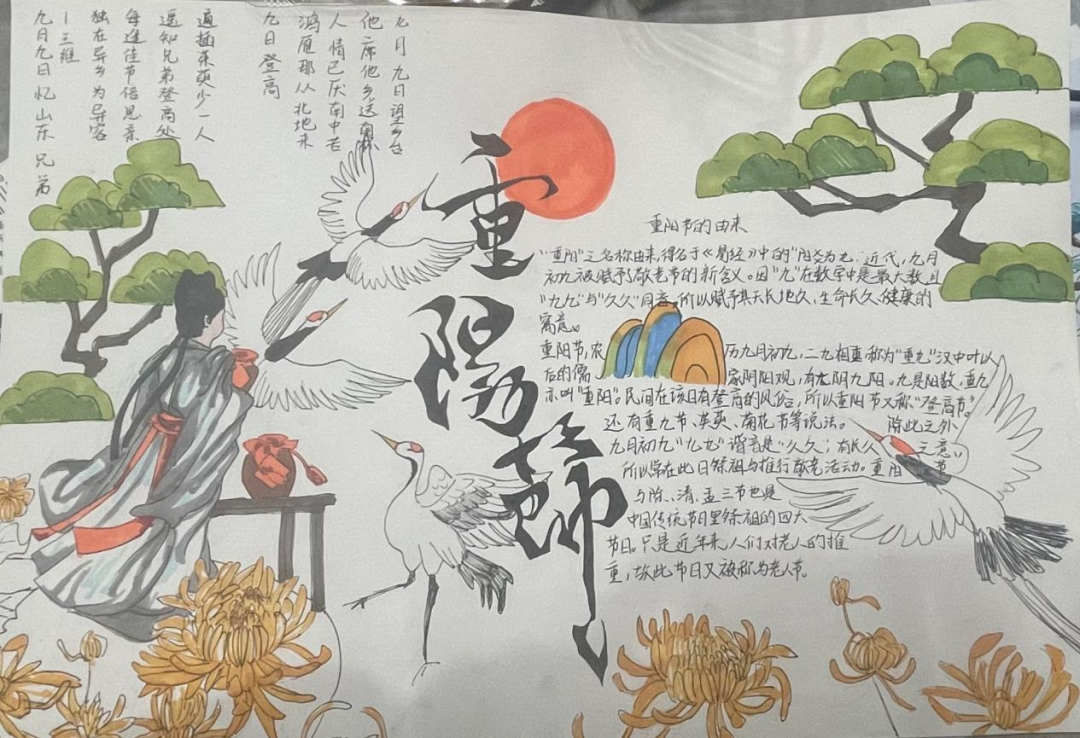 九月九日望乡台
他席他乡送
人情已厌南中苦
鸿雁那从北地来
九日登高
遥插茱萸少一人
遥知兄弟登高处
每逢佳节倍思亲
独在异乡为异客
—王维
九日九日忆山东兄弟
重陽節
重阳节的由来
"重阳"之名称由来,得名于《易经》中的"阳爻为九".近代,九月
初九被赋予敬老节的新含义。因"九"在数字中是最大数,且
"九九"与"久久"同音,所以赋予其天长地久,生命长久,健康的
寓意。
重阳节,农历九月初九,二九相重,称为"重九"汉中叶以
后的儒家阴阳观,有六阴九阳。九是阳数,重九
亦叫"重阳"。民间在该日有登高的风俗,所以重阳节又称"登高节"
还有重九节、茱萸、菊花节等说法。除此之外
九月初九"九九"谐音是"久久",有长久之意,
所以常在此日祭祖与推行敬老活动。重阳节
与除、清、盂三节也是
中国传统节日里祭祖的四大
节日。只是近年来人们对老人的推
重,故此节日又被称为老人节。